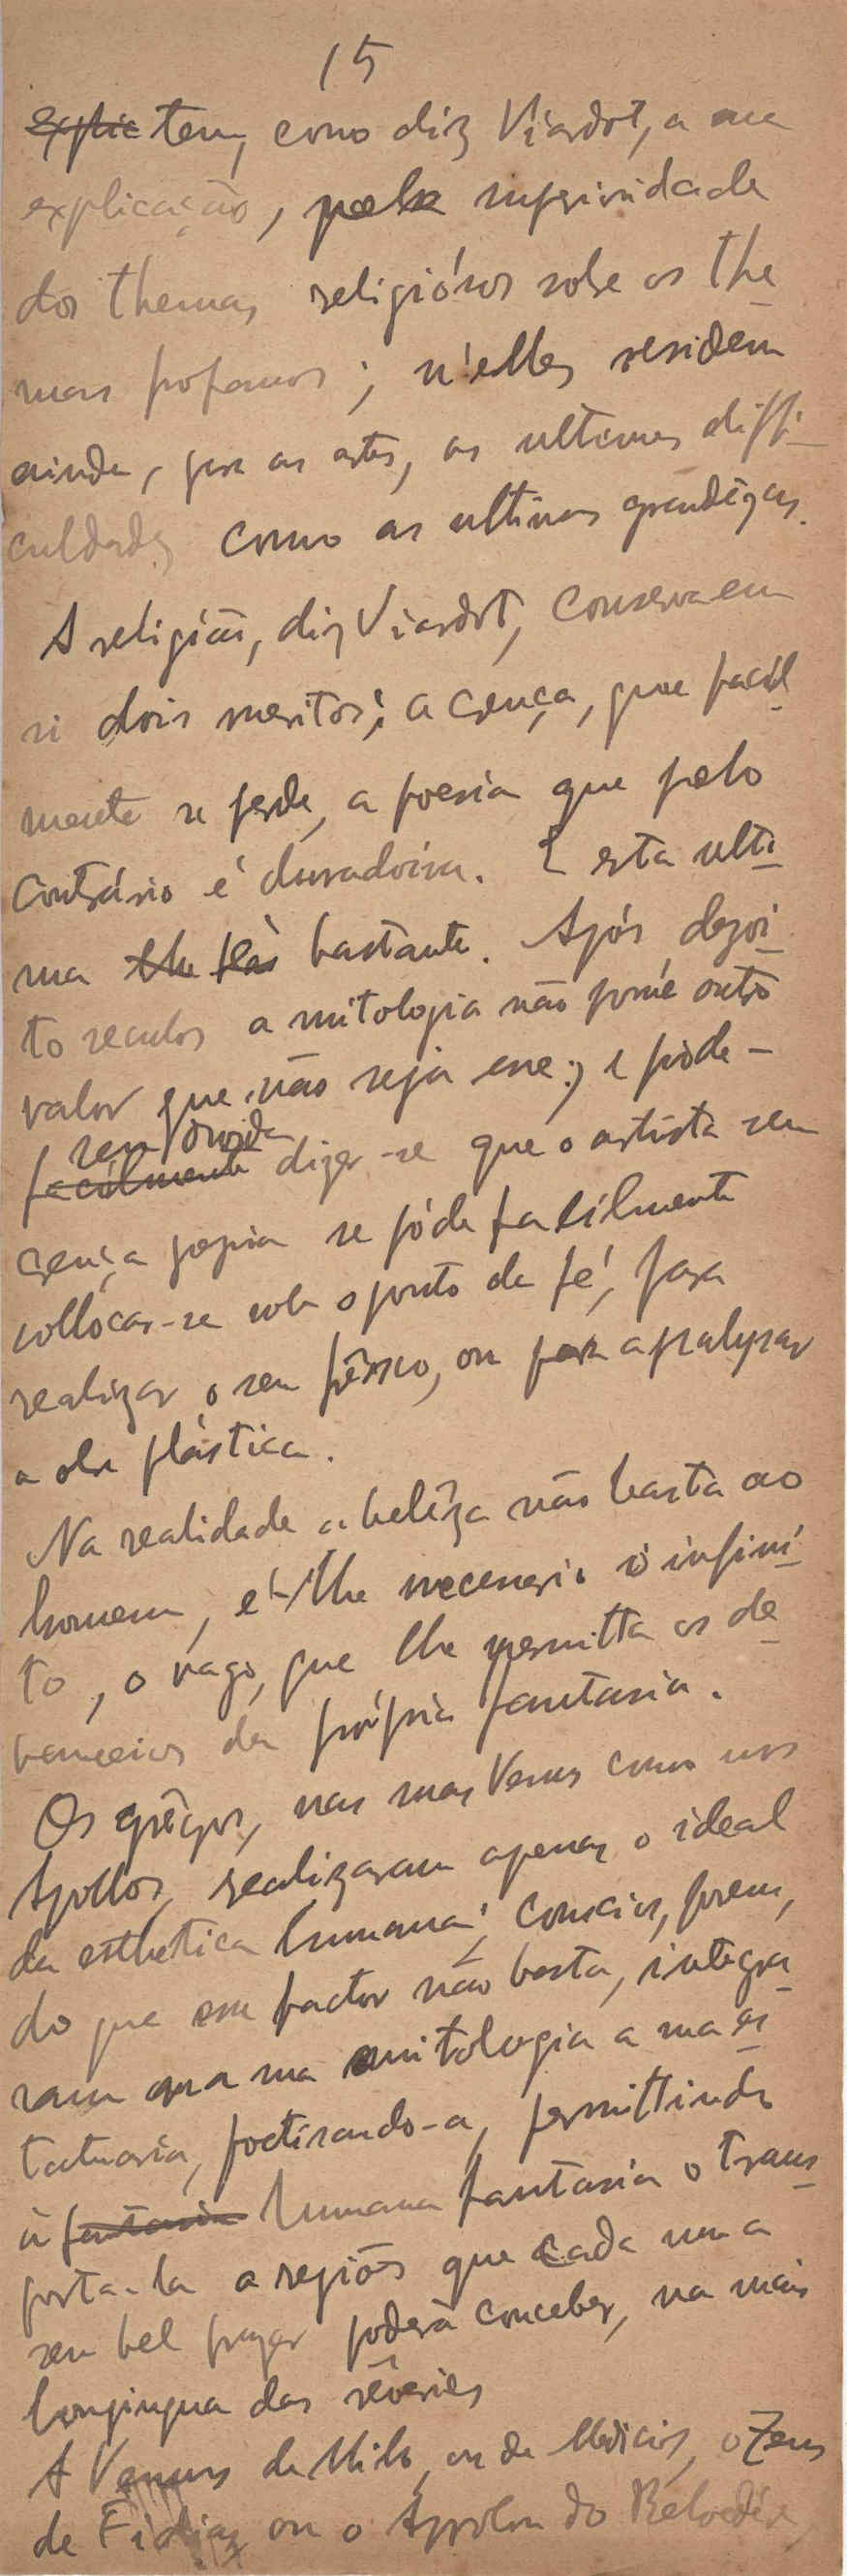 15
explic tem, como diz Viardot, a sua
explicação, pela superioridade
dos themas religiósos sobre os the
mas profanos; n'elles residem
ainda, para as artes, as ultimas diffi-
culdades como as ultimas grandêzas.
A religião, diz Viardot, conserva em
si dois meritos; a crença, que facil
mente se perde, a poesia que pelo
contrário é duradoira. E esta ulti
ma bastante. Após dezoi
to seculos a mitologia não possúe outro
valor que não seja esse; e póde-
sem duvida
facilmente dizer-se que o artista sem
crença propria se póde facilmente
collocar-se sob o ponto de fé, para
realizar o seu frêsco, ou para
a obra plástica.
Na realidade a belêza não basta ao
homem, é-lhe necessario o infini
to, o vago, que lhe permitta os de
vaneios da própria fantasia.
Os grêgos, nas suas Venus como nos
Apollos, realizaram apenas o ideal
da esthetica humana; conscios, porem,
do que esse factor não basta, integra
ram na sua mitologia a sua es
tatuaria, poetisando-a, permittindo
á fantasia humana fantasia o trans
porta-la a regiões que cada um a
seu bel prazer poderá conceber, na mais
longinqua das rêveries
A Venus de Milo, ou de Medicis, o Zeus
de Fidias ou o Appolon do Belvedére,